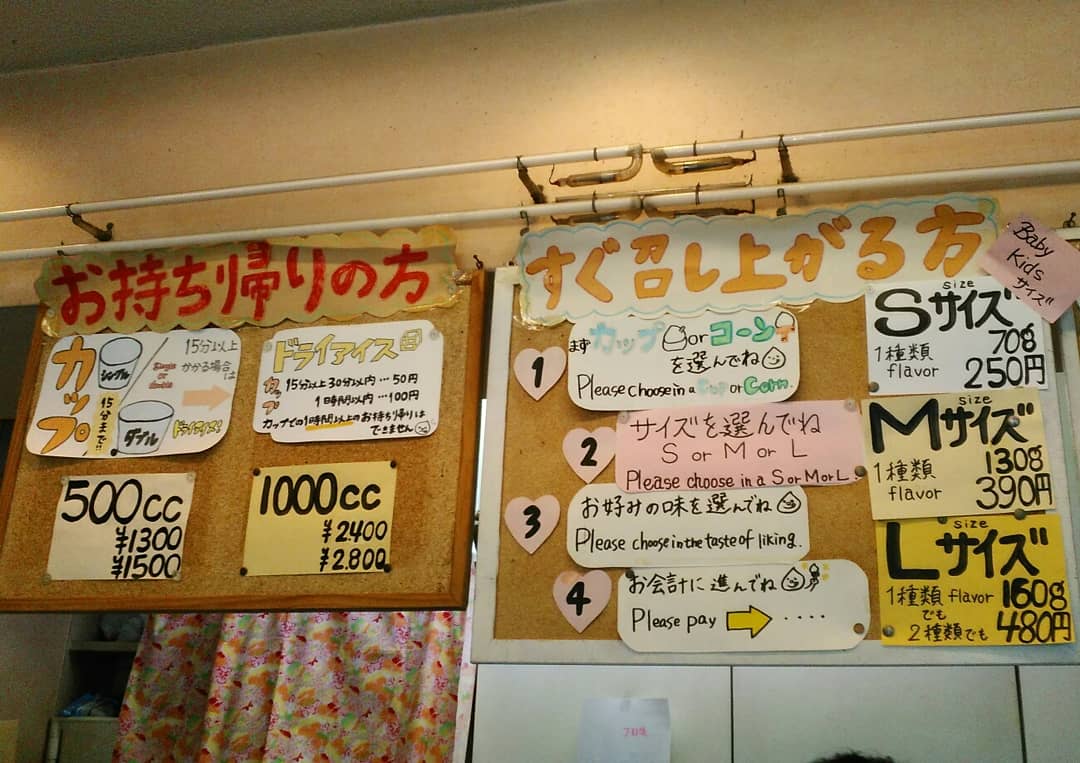 お持ち帰りの方
カップ
シングル
Single
or
double
15分以上
かかる場合
は
15分まで!!
ダブル
ドライアイス
ドライアイス
カップ
15分以上30分以内…50円
1時間以内…100円
カップでの1時間以上のお持ち帰りは
できません
500cc
¥1300
¥1500
1000cc
¥2400
¥2.800
すぐ召し上がる方
Baby
Kids
サイズ
1
まず カップorコーン
を選んでね
Please choose in a Cup or Corn.
2
サイズを選んでね
S or M or L
Please choose in a S or M or L.
3
お好みの味を選んでね
Please choose in the taste of liking.
4
お会計に進んでね
Please pay ····
size
Sサイズ
1種類 70g
flavor 250円
size
Mサイズ
1種類 130g
flavor 390円
size
Lサイズ
1種類 flavor 160g
でも
2種類でも 480円